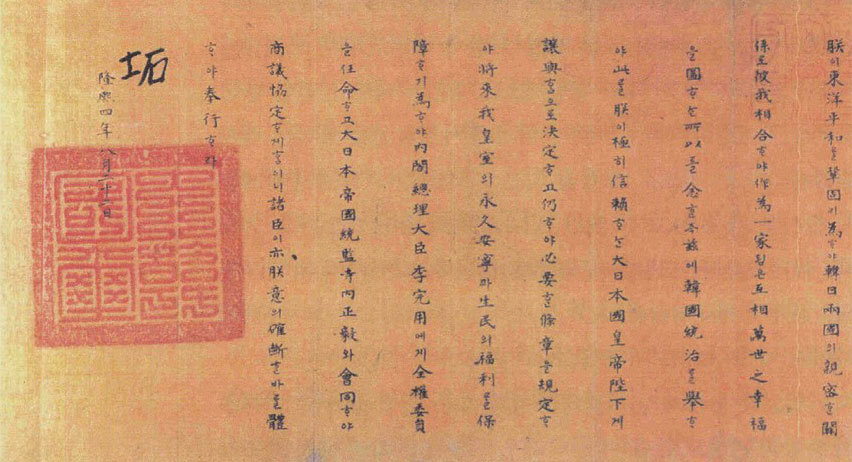 朕이東洋平和를鞏固히為ᄒᆞ야韓日兩國의親密ᄒᆞᆫ關
係로彼我相合ᄒᆞ야作為一家홈은互相萬世之幸福
을圖ᄒᆞᄂᆞᆫ所以를念ᄒᆞᆫ즉玆에韓國統治를擧ᄒᆞ
야此를朕이極히信賴ᄒᆞᄂᆞᆫ大日本國皇帝陛下게
讓與홈으로決定ᄒᆞ고仍ᄒᆞ야必要ᄒᆞᆫ條章을規定ᄒᆞ
야將來我皇室의永久安寧과生民의福利를保
障ᄒᆞ기為ᄒᆞ야內閣總理大臣李完用에게全權委員
을任命ᄒᆞ고大日本帝國統監寺內正毅와會同ᄒᆞ야
商議協定케홈이니諸臣이亦朕意의確斷ᄒᆞᆫ바를體
ᄒᆞ야奉行ᄒᆞ라
坧
隆熙四年八月二十二日